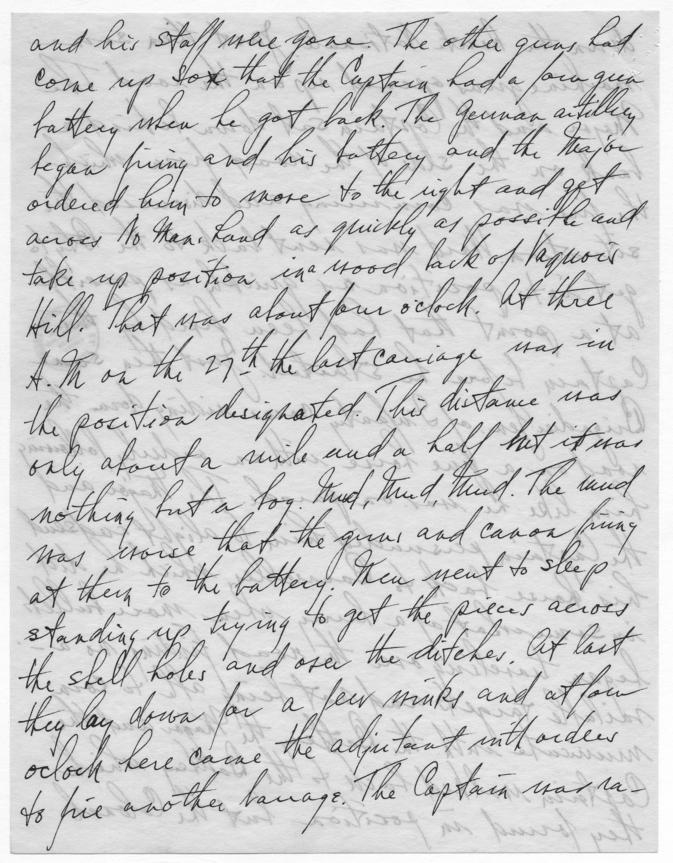 and his staff were gone. The other guns had
come up so that the Captain had a four gun
battery when he got back. The German artillery
began firing and his battery and the Major
ordered him to move to the right and get
across No Mans Land as quickly as possible and
take up position in a wood back of Vaquois
Hill. That was about four oclock. At three
A.M on the 27th the last carriage was in
the position designated. This distance was
only about a mile and a half but it was
nothing but a bog. Mud, Mud, Mud. The mud
was worse that the guns and canon firing
at them to the battery. Men went to sleep
standing up trying to get the pieces across
the shell holes and over the ditches. At last
they lay down for a few winks and at four
oclock here came the adjutant with orders
to fire another barrage. The Captain was ra-